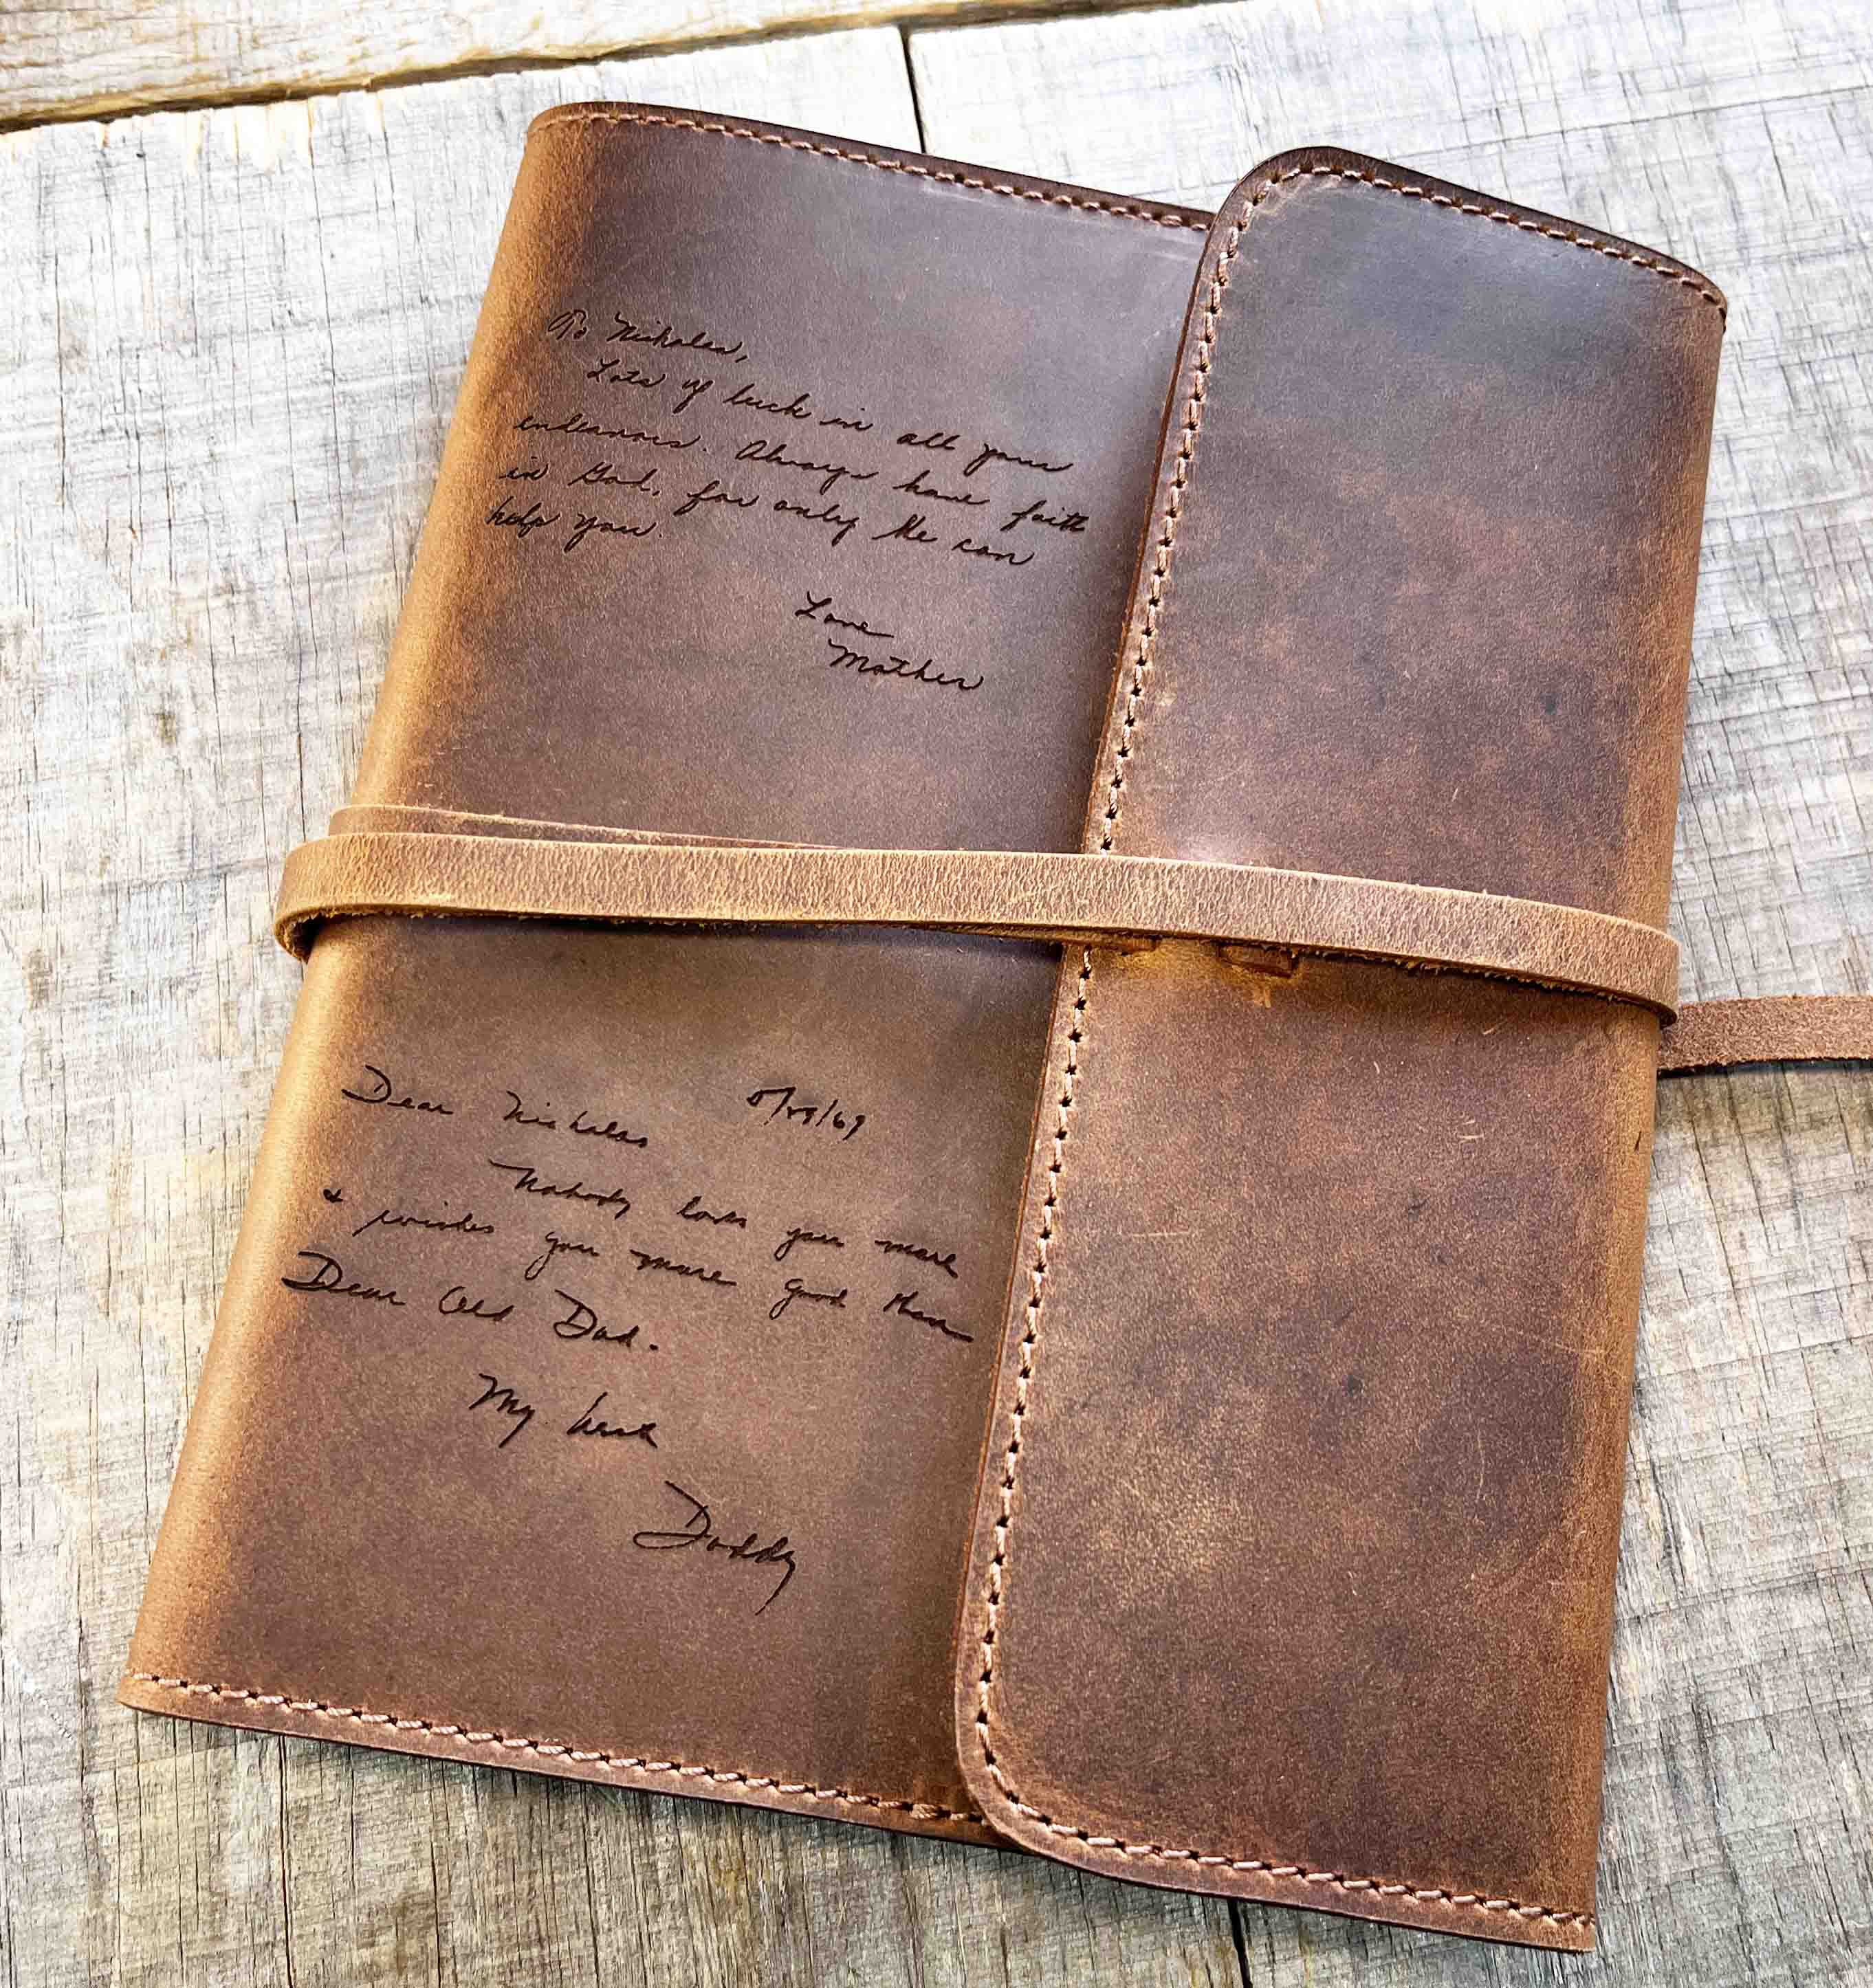 To Nicholas,
Lots of luck in all your
endeavors. Always have faith
in God, for only He can
help you.
Love
Mother
Dear Nicholas
Nobody loves you more
& wishes you more good than
Dear Old Dad.
My best
Daddy